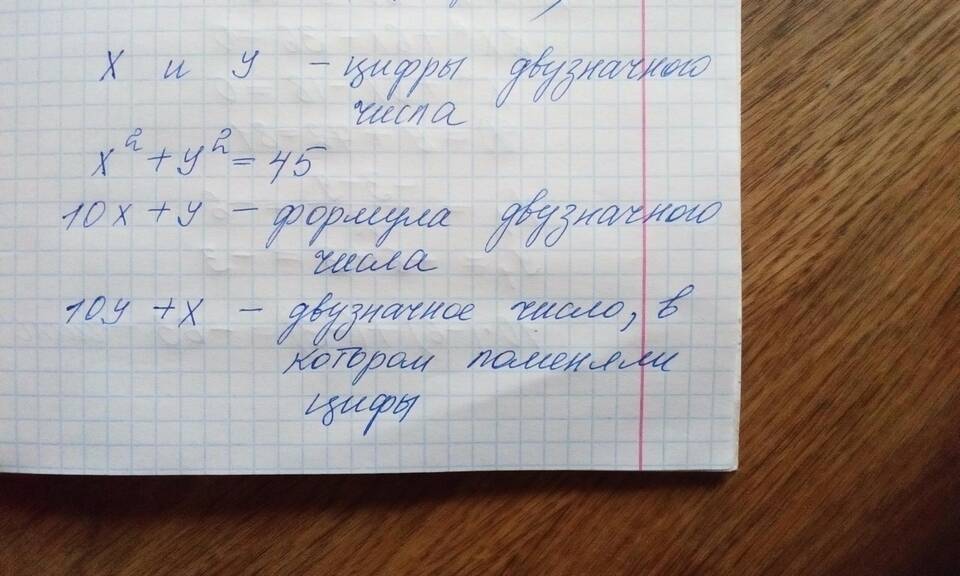 х и у – цифры двузначного
числа
х² + у² = 45
10х + у – формула двузначного
числа
10у + х – двузначное число, в
котором поменяли
цифы